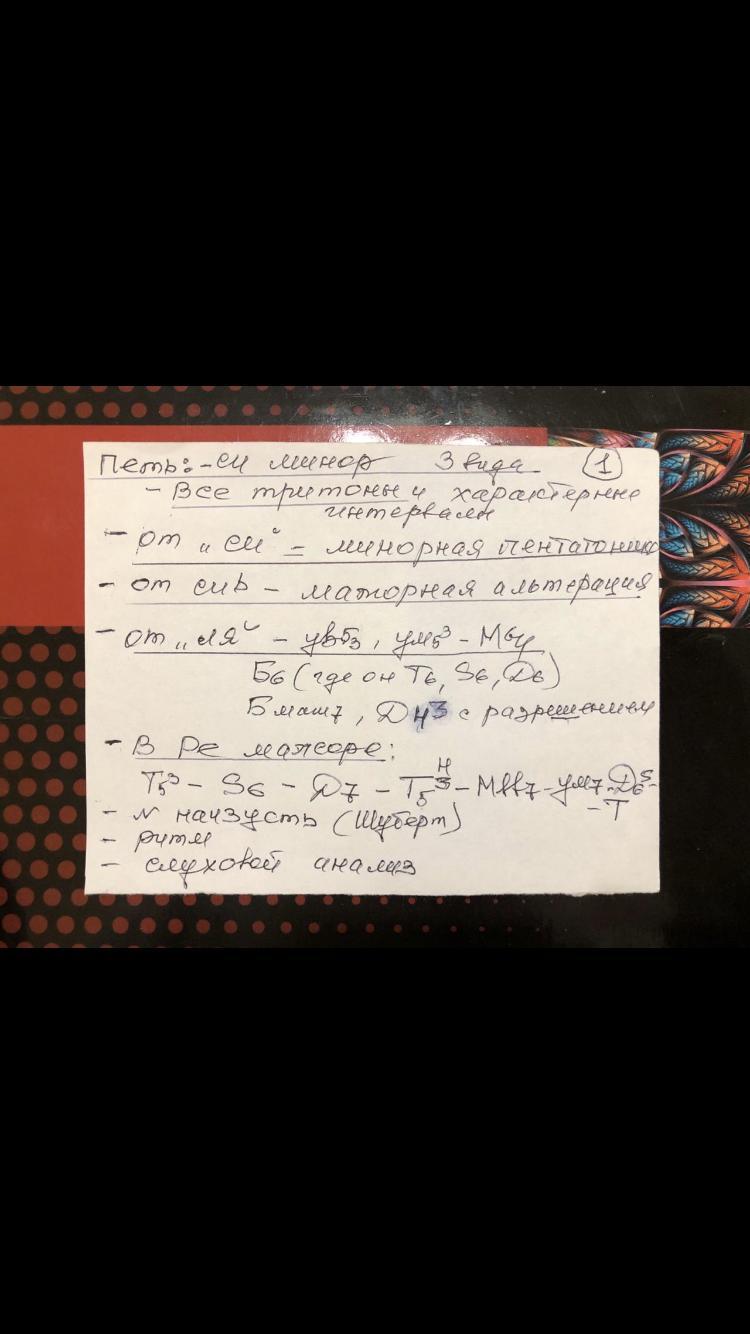 Петь: - си минор 3 вида ①
- Все тритоны и характерные
интервалы
- от „си“ = минорная пентатоника
- от сиb - мажорная альтерация
- от „ля“ - ув53, ум53 - М64
Б6 (где он Т6, S6, D6)
Б маж7, D43 с разрешением
- В Ре мажоре:
Т53 - S6 - D7 - Т53 н - МVII7 - ум7 - D65 -
- Т
- № наизусть (Шуберт)
- ритм
- слуховой анализ